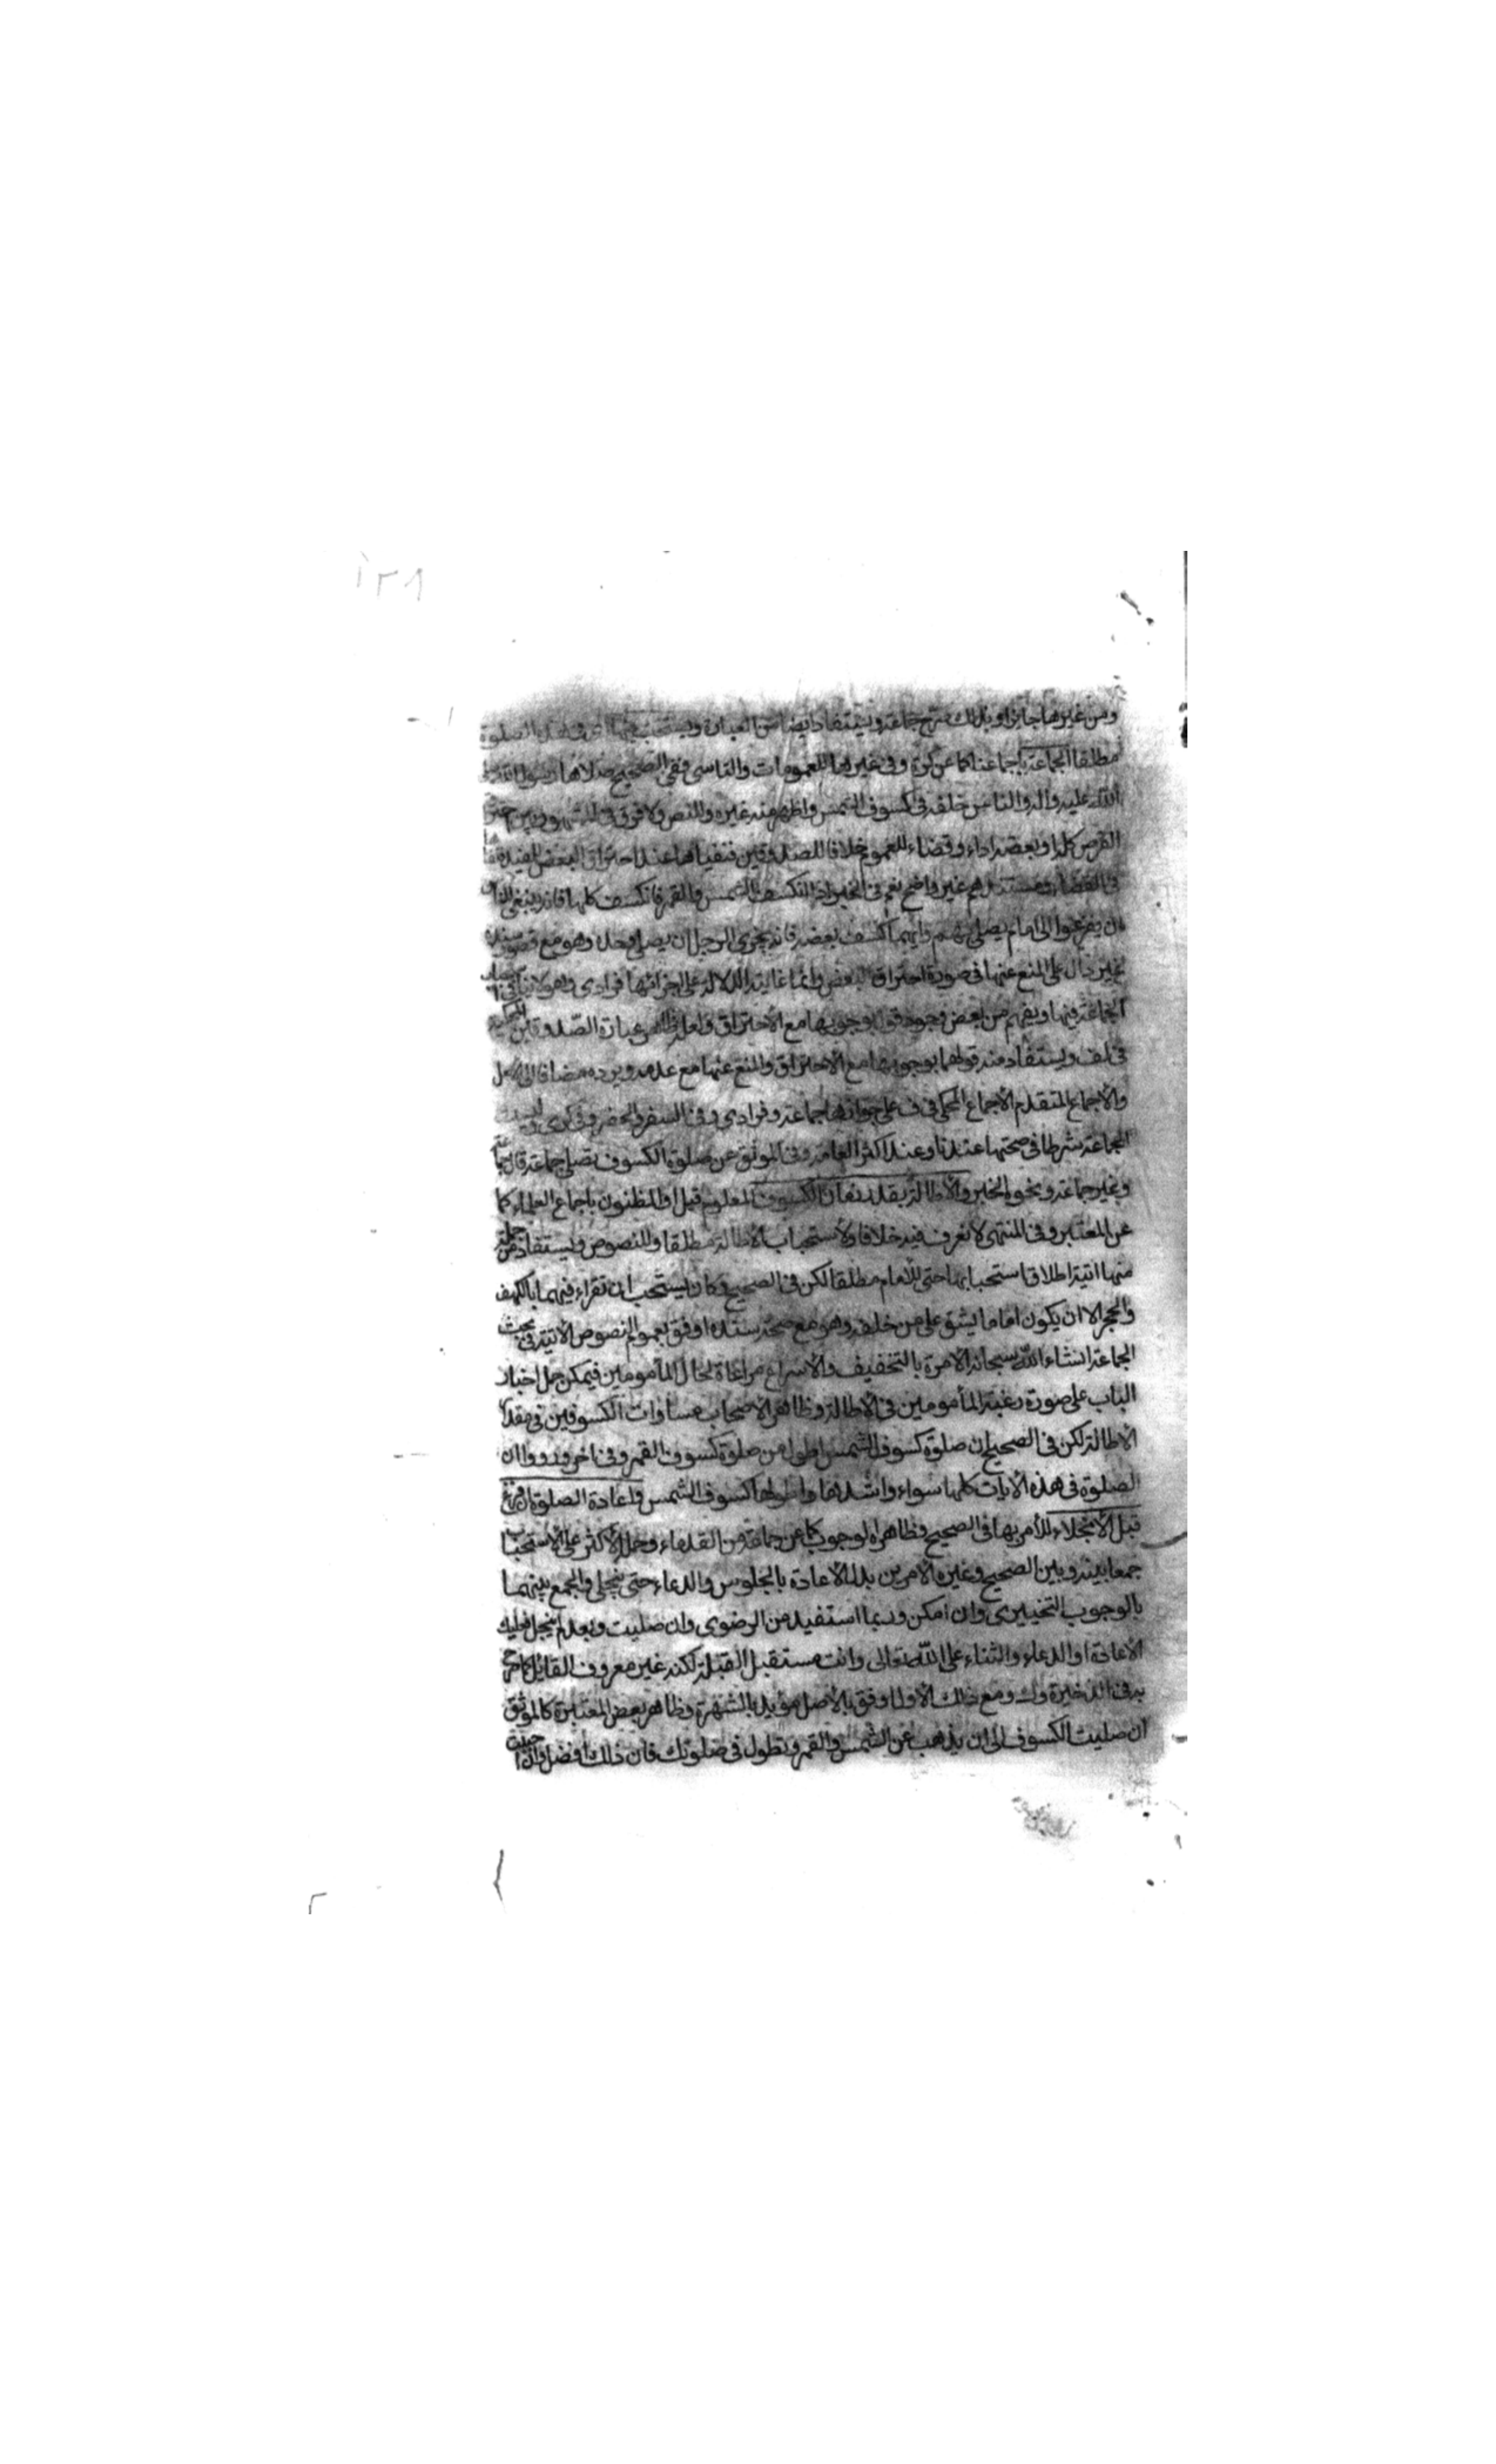 ١٢٨
ومن غيرها جائزا وبذلك صرح جماعة ويستفاد ايضا من العبارة ويستحب فيها اى فى هذه الصلوة
مطلقا الجماعة باجماعنا كما عن كرة وفى غيرها للعمومات والتاسى ففى الصحيح صلاها رسول الله صلى
الله عليه واله والناس خلفه فى كسوف الشمس واظهر منه غيره والنص ولا فرق فى المشهور بين احتراق
القرص كله او بعضه اداء وقضاء للعموم خلافا للصدوقين فنفياها عند احتراق البعض للمفيد
فى القضاء ومستندهم غير واضح نعم فى الخبر اذا انكسف الشمس والقمر فانكسف كلها فانه ينبغى للناس
ان يفزعوا الى امام يصلى بهم وايهما كسف بعضه فانه يجزى الرجل ان يصلى وحده وهو مع قصور سنده
غير دال على المنع عنها فى صورة احتراق البعض وانما غايته الدلالة على اجزائها فرادى وهو لا ينافى استحباب
الجماعة فيها ويفهم من بعض وجود قول بوجوبها مع الاحتراق ولعله ظاهر عبارة الصدوقين المحكية
فى لف ويستفاد منه قولهما بوجوبها مع الاحتراق والمنع عنها مع عدمه ويرده مضافا الى الاصل
والاجماع المتقدم الاجماع المحكى فى ف على جوازها جماعة وفرادى وفى السفر والحضر وفى كرى وليست
الجماعة شرطا فى صحتها عندنا وعند اكثر العامة وفى الموثق عن صلوة الكسوف تصلى جماعة قال جماعة
وغير جماعة ونحوه الخبر والاطالة بقدر زمان الكسوف المعلوم قبل او المظنون باجماع العلماء كما
عن المعتبر وفى المنتهى لا نعرف فيه خلافا ولاستحباب الاطالة مطلقا وللنصوص ويستفاد من جملة
منها اتية اطلاق استحبابها حتى للامام مطلقا لكن فى الصحيح وكان يستحب ان تقراء فيهما بالكهف
والحجر الا ان يكون اماما يشق على من خلفه وهو مع صحة سنده اوفق بعموم النصوص الاتية فى بحث
الجماعة انشاء الله سبحانه الامرة بالتخفيف والاسراع مراعاة لحال المأمومين فيمكن حمل اخبار
الباب على صورة رغبة المأمومين فى الاطالة وظاهر الاصحاب مساوات الكسوفين فى مقدار
الاطالة لكن فى الصحيح ان صلوة كسوف الشمس اطول من صلوة كسوف القمر وفى اخر ورووا ان
الصلوة فى هذه الايات كلها سواء واشدها واطولها كسوف الشمس واعادة الصلوة ان فرغ
قبل الانجلاء للأمر بها فى الصحيح وظاهره الوجوب كما عن جماعة من القدماء وحمله الاكثر على الاستحباب
جمعا بينه وبين الصحيح وغيره الامرين بدل الاعادة بالجلوس والدعاء حتى ينجلى والجمع بينهما
بالوجوب التخييرى وان امكن وربما استفيد من الرضوى وان صليت وبعد لم ينجل فعليك
الاعادة او الدعاء والثناء على الله تعالى وانت مستقبل القبلة لكنه غير معروف القائل كما صرح
به فى الذخيرة وك ومع ذلك الاول اوفق بالأصل مؤيد بالشهرة وظاهر بعض المعتبرة كالموثق
ان صليت الكسوف الى ان يذهب عن الشمس والقمر وتطول فى صلوتك فان ذلك افضل وان احببت